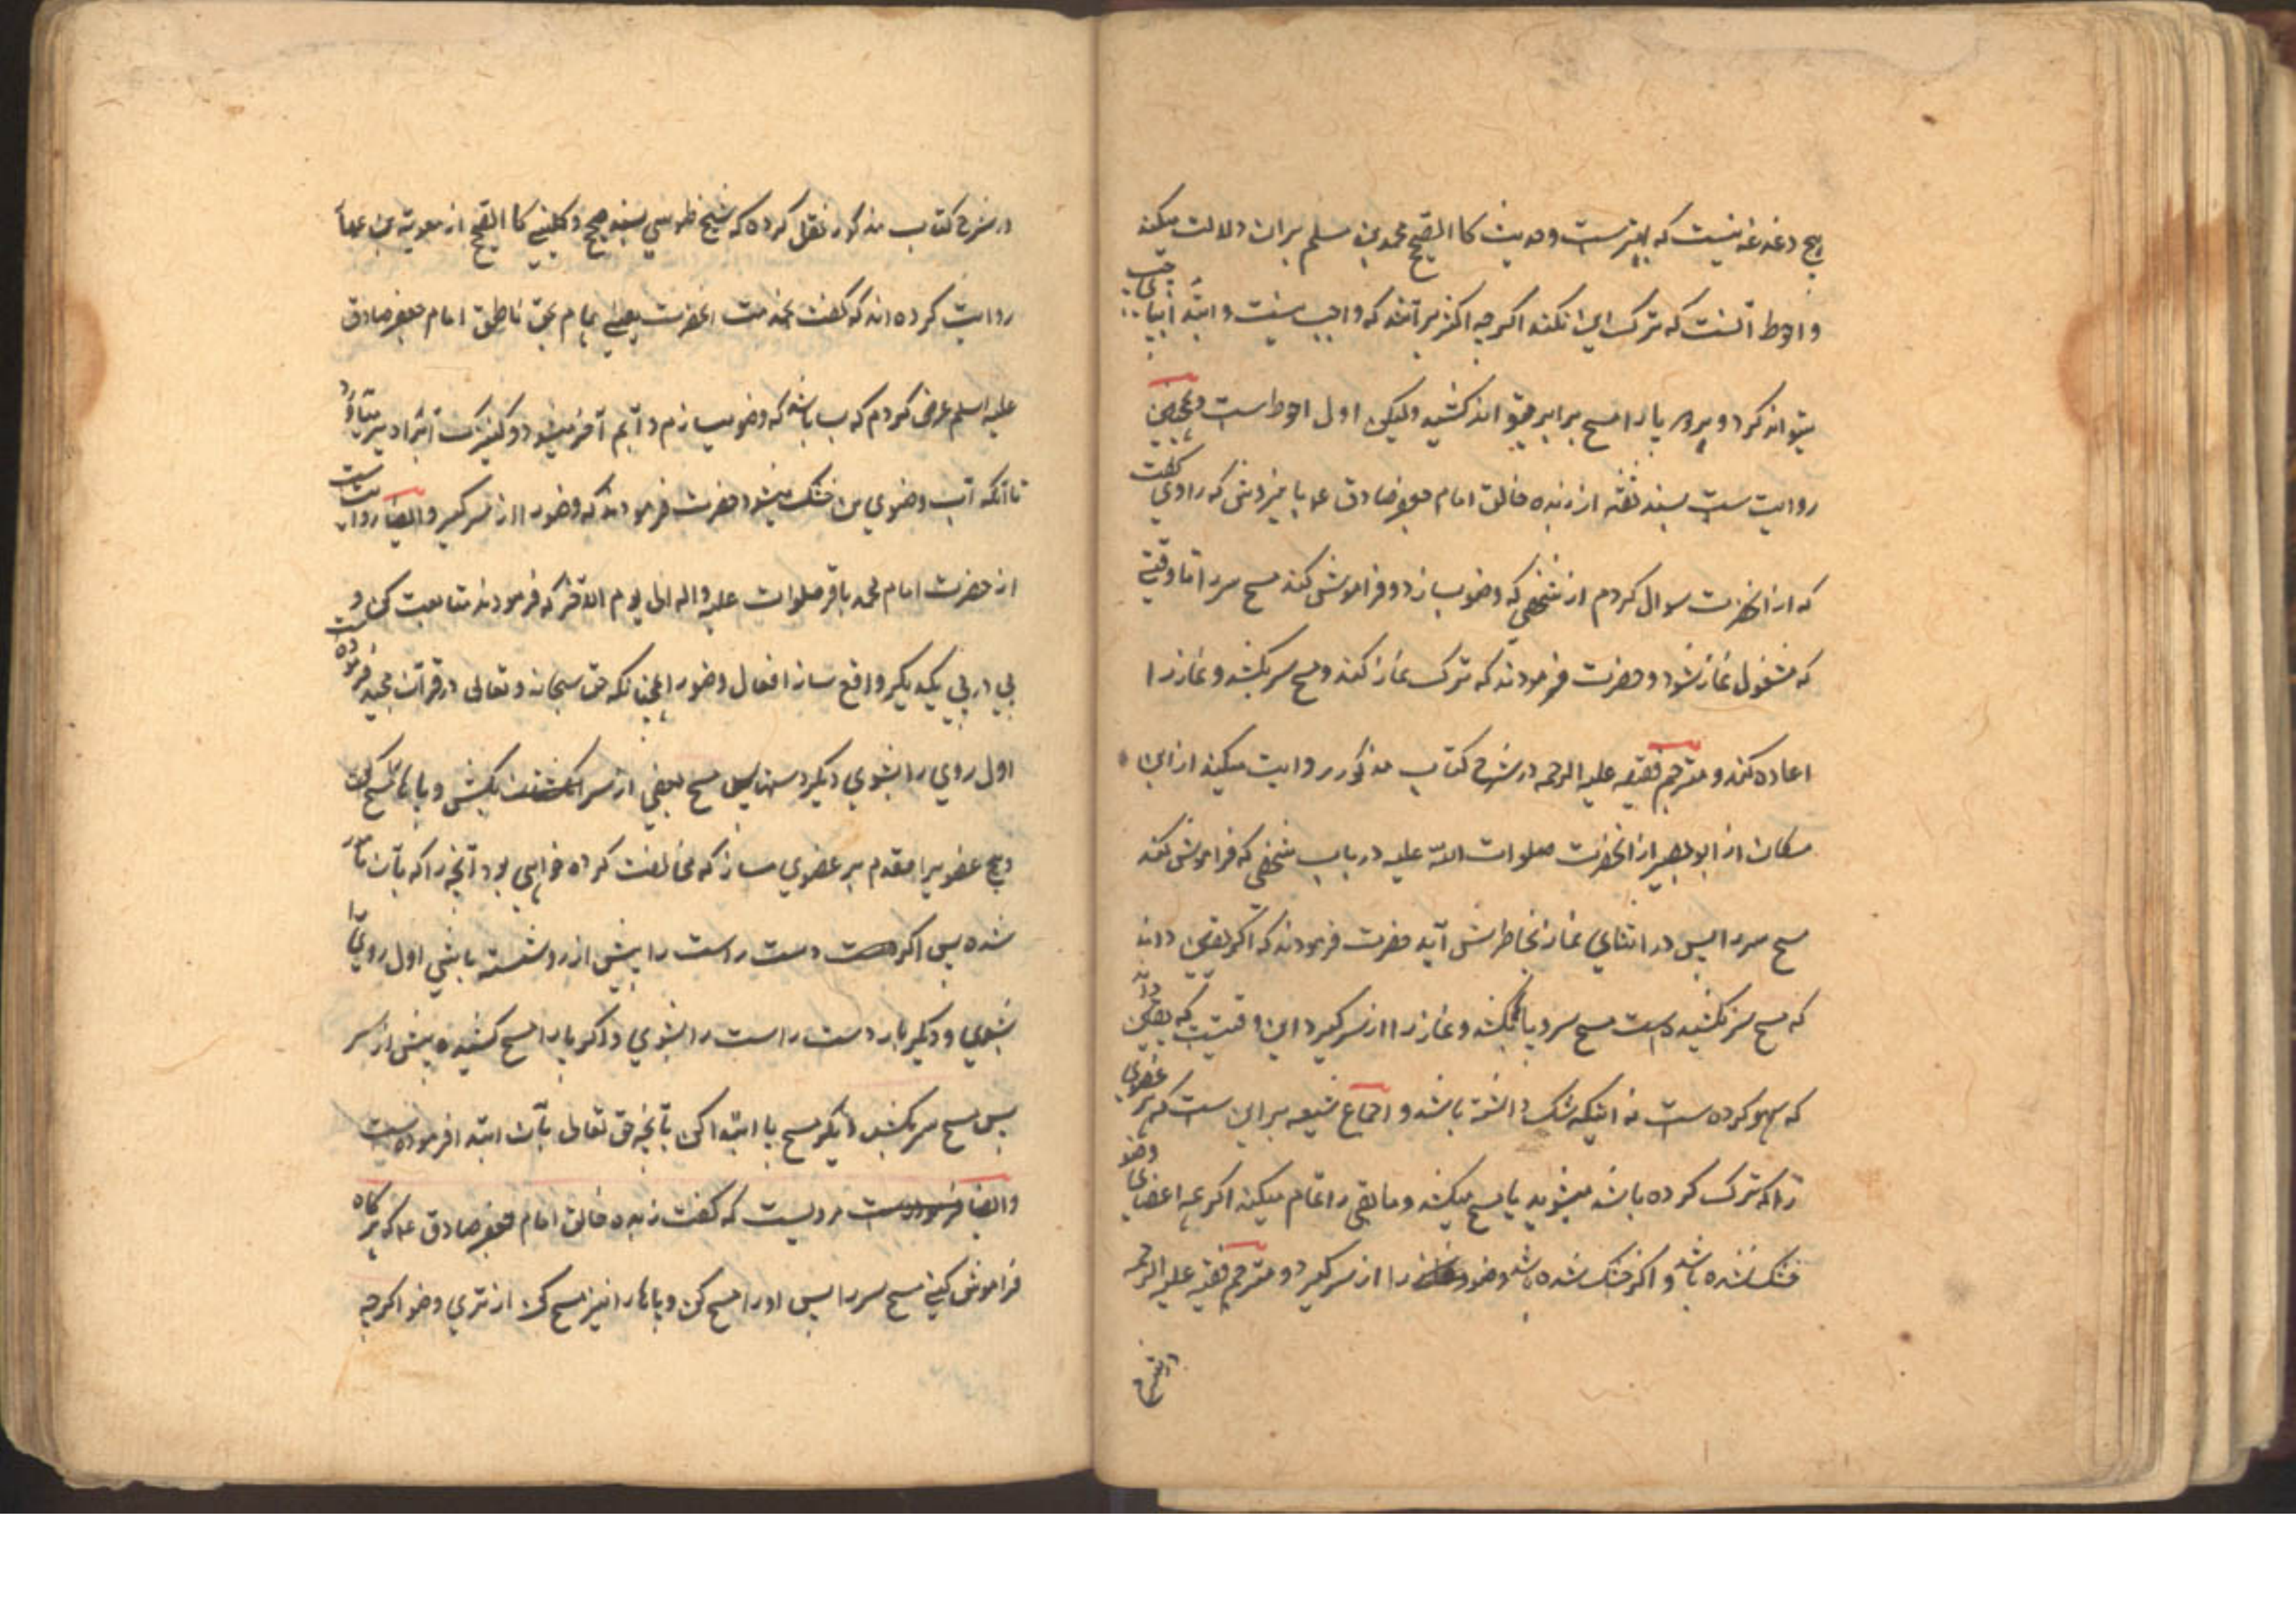 هیچ دغدغه نیست که بهترست و حدیث کا الصحیح محمد بن مسلم بران دلالت میکند
و احوط آنست که ترک این نکند اکرچه اکثر برآنند که واجب نیست و ابتدا
میتواند کرد و هر دو پا را مسح برابر میتواند کشید ولیکن اول احوط است و همچنین
روایت ست بسند ثقه از زبده خالق امام جعفر صادق عم با یزدی که راوی گفت
که از انحضرت سوال کردم از شخصی که وضو بسازد و فراموش کند مسح سر را تا وقتی
که مشغول نماز شود و حضرت فرمودند که ترک نماز کند و مسح سر بکشد و نماز را
اعاده کند و مترجم فقیه علیه الرحمه در شرح کتاب مذکور روایت میکند از ابن
مسکان از ابو بصیر از انحضرت صلوات الله علیه در باب شخصی که فراموش کند
مسح سر را پس در اثنای نماز بخاطرش آید حضرت فرمودند که اکر یقین داند
که مسح سر نکشیده است مسح سر و پا بکشد و نماز را از سر کیرد و این وقتیست که یقین داند
که سهو کرده ست نه اینکه شک داشته باشد و اجماع شیعه بر این ست که هر عضوی
را که ترک کرده باشد میشوید یا مسح میکشد و مابقی را تمام میکند اکر همه اعضای وضو
خشک نشده باشد و اکر خشک شده باشد وضو را از سر کیرد و مترجم فقیه علیه الرحمه
در شرح
در شرح کتاب مذکور نقل کرده که شیخ طوسی بسند صحیح و کلینی کا الصحیح از معویة بن عمار
روایت کرده اند که گفت بخدمت انحضرت یعنی امام بحق ناطق امام جعفر صادق
علیه السلم عرض کردم که بسا باشد که وضو میسازم و آبم آخر میشود و کنیزک آب را دیر میآورد
تا آنکه آب وضوی من خشک میشود حضرت فرمودند که وضو را از سر کیر و ایضا روایت ست
از حضرت امام محمد باقر صلوات علیه و اله الی یوم الاخر که فرمودند متابعت کن و
پی در پی یکدیکر واقع ساز افعال وضو را همچنانکه حق سبحانه و تعالی در قرآن مجید فرموده ست
اول روی را بشوی دیکر دستها پس مسح بعضی از سر بکش و پاها را مسح کن
و هیچ عضو را مقدم بر عضوی مساز که مخالفت کرده خواهی بود آنچه را که بآن مامور
شده پس اکر دست راست را پیش از رو شسته باشی اول روی را
بشوی و دیکر بار دست راست را بشوی و اکر پا را مسح کشیده پیش از سر
پس مسح سر بکش دیکر مسح پا ابتدا کن بآنچه حق تعالی بآن ابتدا فرموده ست
و ایضا مرویست که گفت زبده خالق امام جعفر صادق عم که هر گاه
فراموش کنی مسح سر را پس او را مسح کن و پاها را نیز مسح کن از تری وضو اکرچه